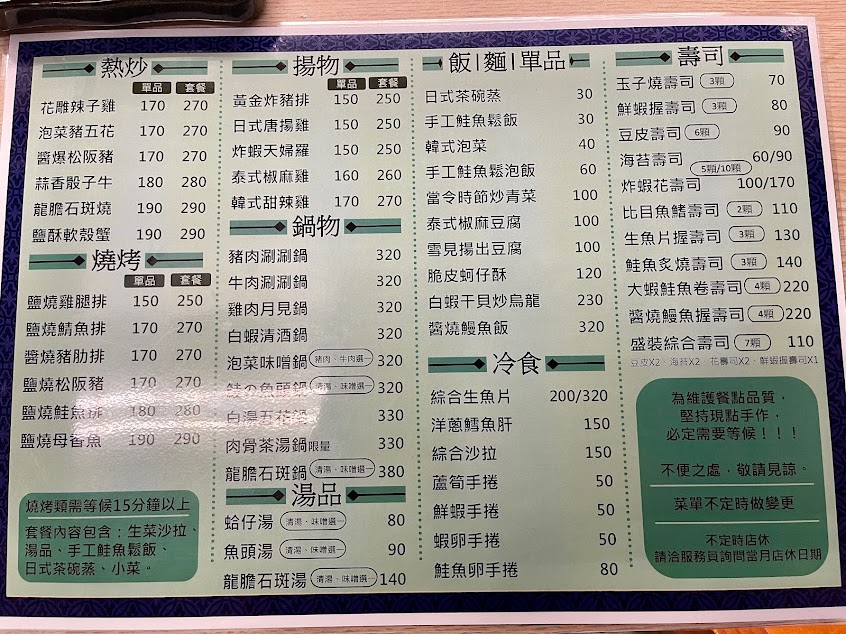 熱炒
單品 套餐
花雕辣子雞 170 270
泡菜豬五花 170 270
醬爆松阪豬 170 270
蒜香骰子牛 180 280
龍膽石斑燒 190 290
鹽酥軟殼蟹 190 290
燒烤
單品 套餐
鹽燒雞腿排 150 250
鹽燒鯖魚排 170 270
醬燒豬肋排 170 270
鹽燒松阪豬 170 270
鹽燒鮭魚排 180 280
鹽燒母香魚 190 290
燒烤類需等候15分鐘以上
套餐內容包含：生菜沙拉、
湯品、手工鮭魚鬆飯、
日式茶碗蒸、小菜。
揚物
單品 套餐
黃金炸豬排 150 250
日式唐揚雞 150 250
炸蝦天婦羅 150 250
泰式椒麻雞 160 260
韓式甜辣雞 170 270
鍋物
豬肉涮涮鍋 320
牛肉涮涮鍋 320
雞肉月見鍋 320
白蝦清酒鍋 320
泡菜味噌鍋 豬肉、牛肉選一 320
鮭の魚頭鍋 清湯、味噌選一 320
白湯五花鍋 330
肉骨茶湯鍋限量 330
龍膽石斑鍋 清湯、味噌選一 380
湯品
蛤仔湯 清湯、味噌選一 80
魚頭湯 清湯、味噌選一 90
龍膽石斑湯 清湯、味噌選一 140
飯|麵|單品
日式茶碗蒸 30
手工鮭魚鬆飯 30
韓式泡菜 40
手工鮭魚鬆泡飯 60
當令時節炒青菜 100
泰式椒麻豆腐 100
雪見揚出豆腐 100
脆皮蚵仔酥 120
白蝦干貝炒烏龍 230
醬燒鰻魚飯 320
冷食
綜合生魚片 200/320
洋蔥鱈魚肝 150
綜合沙拉 150
蘆筍手捲 50
鮮蝦手捲 50
蝦卵手捲 50
鮭魚卵手捲 80
壽司
玉子燒壽司 3顆 70
鮮蝦握壽司 3顆 80
豆皮壽司 6顆 90
海苔壽司 5顆/10顆 60/90
炸蝦花壽司 100/170
比目魚鰭壽司 2顆 110
生魚片握壽司 3顆 130
鮭魚炙燒壽司 3顆 140
大蝦鮭魚卷壽司 4顆 220
醬燒鰻魚握壽司 4顆 220
盛裝綜合壽司 7顆 110
豆皮X2、海苔X2、花壽司X2、鮮蝦握壽司X1
為維護餐點品質，
堅持現點手作，
必定需要等候！！！
不便之處，敬請見諒。
菜單不定時做變更
不定時店休
請洽服務員詢問當月店休日期